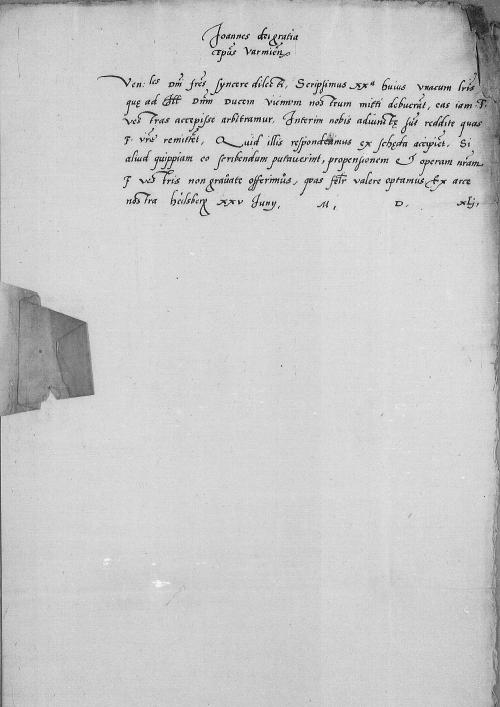 Joannes dei gratia
Ep̃us Varmieñ
Ven: les Dñi frẽs syncere dilecti, Scripsimus xxa huius unacum lr̃is
quę ad Ill Dñm Ducem vicinum nostrum mitti debuerãt, eas iam F.
vestras accepisse arbitramur. Interim nobis adiunctę sũt reddite quas
F. vrẽ remittẽt, Quid illis respondeamus ex scheda accipiẽt. Si
aliud quippiam eo scribendum putaverint, propensionem & operam nr̃am
F. vestris non gravate offerimus, quas felr̃ valere optamus Ex arce
nostra heilsberg xxv Juny. M. D. xlj.